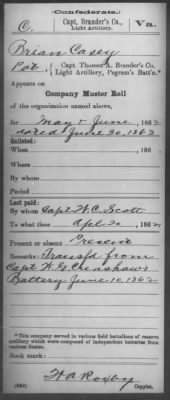 Confederate.
C. Capt. Brander's Co., Light Artillery. Va.
Brian Casey
Pvt. Capt. Thomas A. Brander's Co., Light Artillery, Pegram's Batt'n.*
Appears on
Company Muster Roll
of the organization named above,
for May & June, 1862
dated June 30, 1862
Enlisted:
When , 186
Where
By whom
Period
Last paid:
By whom Capt. W. C. Scott
To what time Apl. 30, 1862
Present or absent Present
Remarks: Transfd from
Capt W. G. Crenshaw's
Battery June 10, 1862
*This company served in various field battalions of reserve
artillery which were composed of independent batteries from
various States.
Book mark:
(642) H A Roxby Copyist.